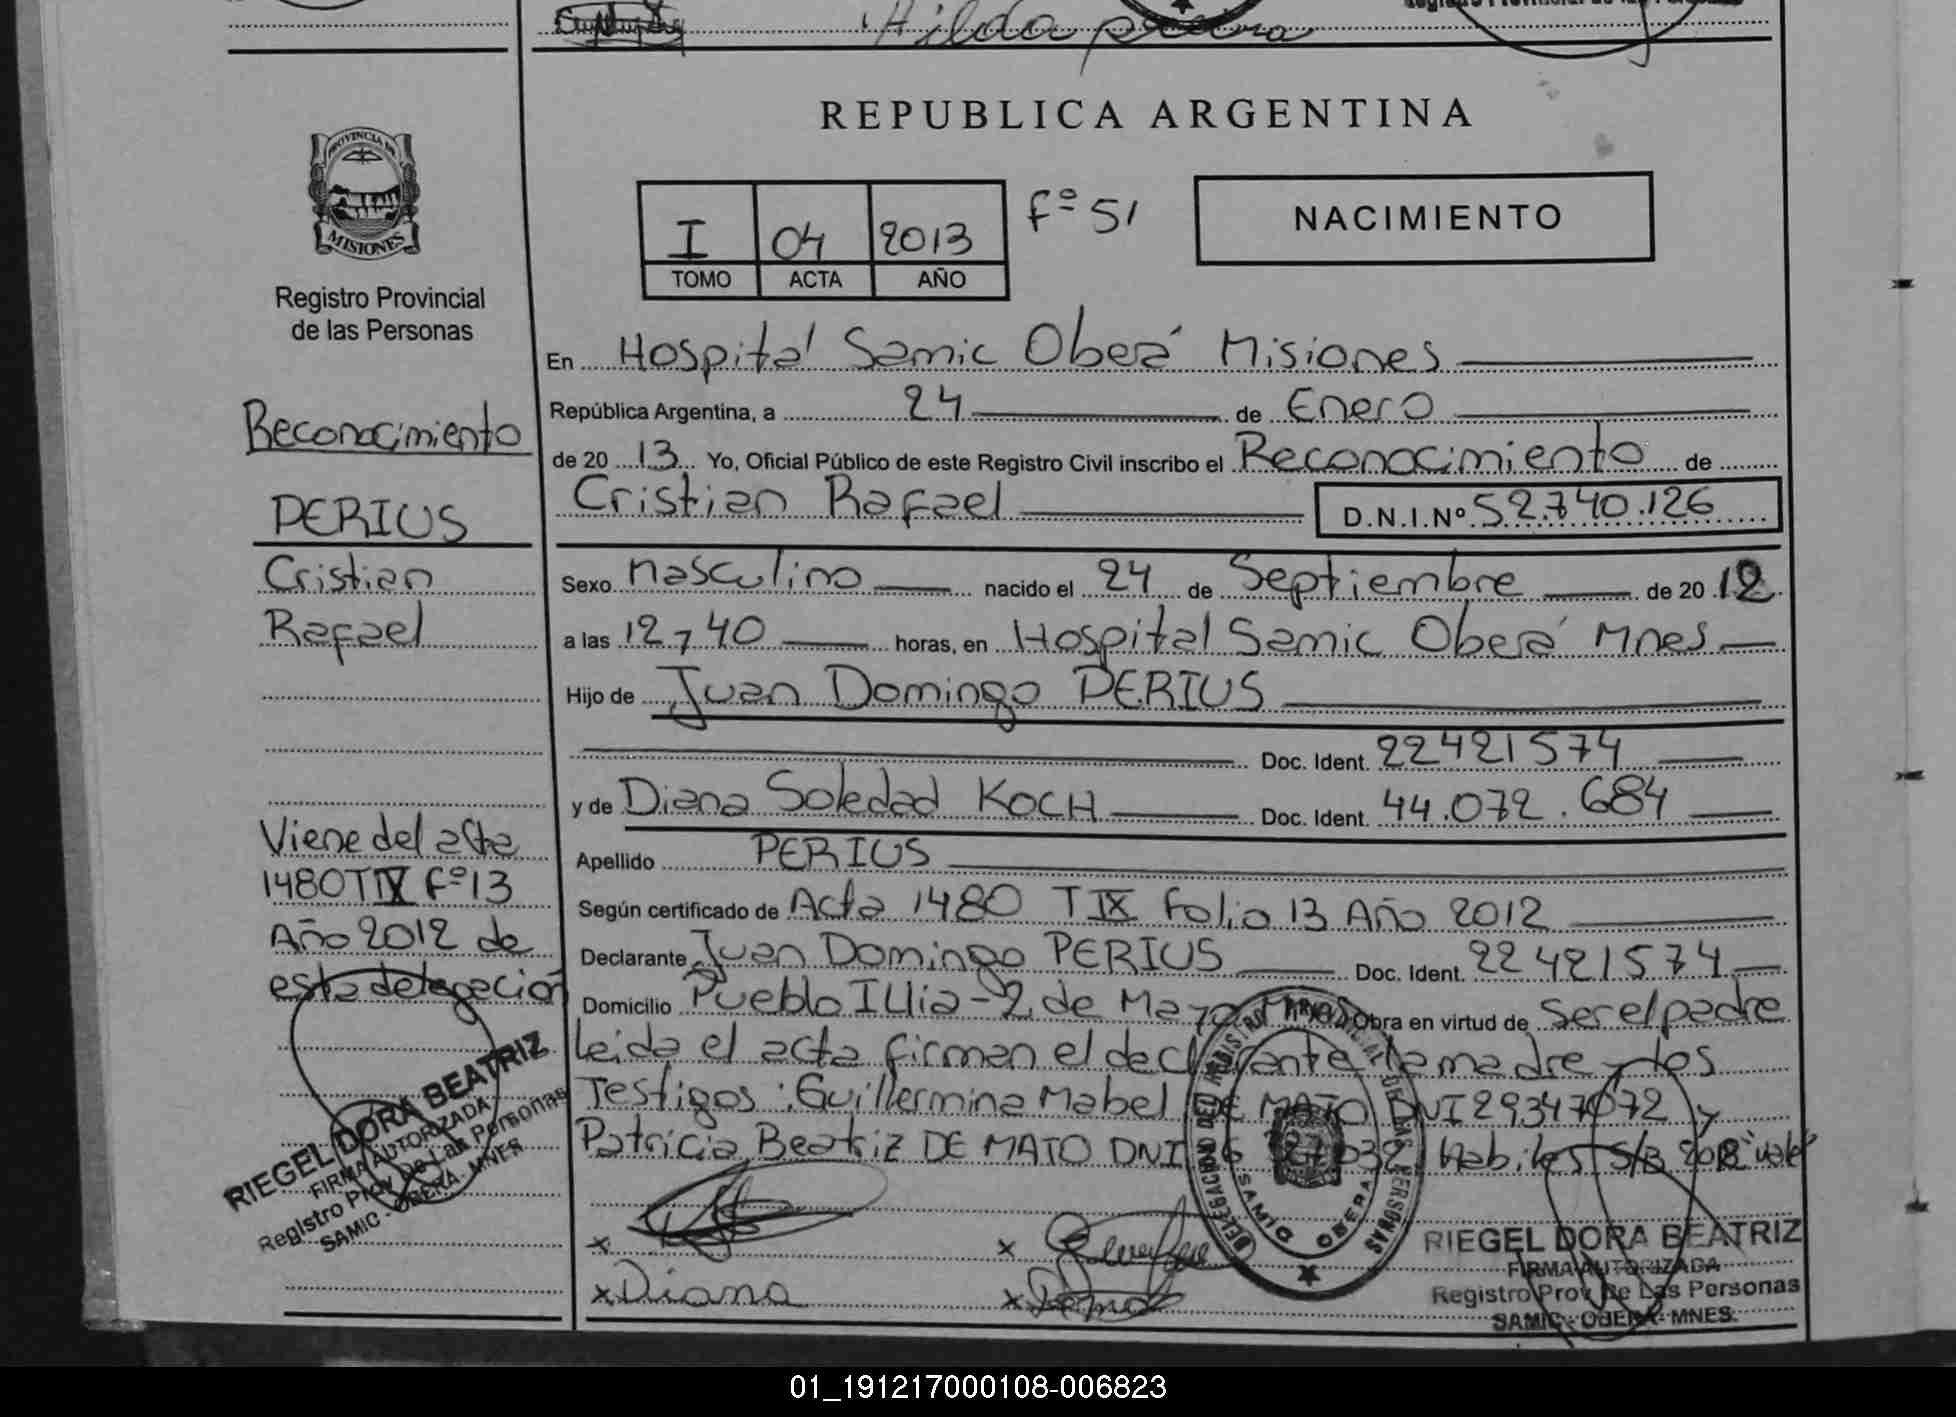 Hilda
REPUBLICA ARGENTINA
PROVINCIA DE
MISIONES
Registro Provincial
de las Personas
I 04 2013 fº 51
TOMO ACTA AÑO
NACIMIENTO
En Hospital Samic Oberá Misiones
República Argentina, a 24 de Enero
de 20 13 Yo, Oficial Público de este Registro Civil inscribo el Reconocimiento de
Cristian Rafael D.N.I.Nº 52.740.126
Sexo masculino nacido el 24 de Septiembre de 20 12
a las 12 y 40 horas, en Hospital Samic Oberá Mnes
Hijo de Juan Domingo PERIUS
Doc. Ident. 22421574
y de Diana Soledad KOCH Doc. Ident. 44.072.684
Apellido PERIUS
Según certificado de Acta 1480 T IX Folio 13 Año 2012
Declarante Juan Domingo PERIUS Doc. Ident. 22421574
Domicilio Pueblo Illia - 2 de Mayo obra en virtud de ser el padre
leida el acta firman el declarante la madre y los
Testigos: Guillermina Mabel DE MATO DNI 29347072 y
Patricia Beatriz DE MATO DNI Habiles S/B
x x
x Diana x
Reconocimiento
PERIUS
Cristian
Rafael
Viene del acta
1480 T IX fº 13
Año 2012 de
esta delegación
RIEGEL DORA BEATRIZ
FIRMA AUTORIZADA
Registro Prov De Las Personas
SAMIC - OBERA - MNES
DELEGACION DEL REGISTRO PROVINCIAL DE LAS PERSONAS
SAMIC OBERA
RIEGEL DORA BEATRIZ
FIRMA AUTORIZADA
Registro Prov De Las Personas
SAMIC - OBERA - MNES.
01_191217000108-006823